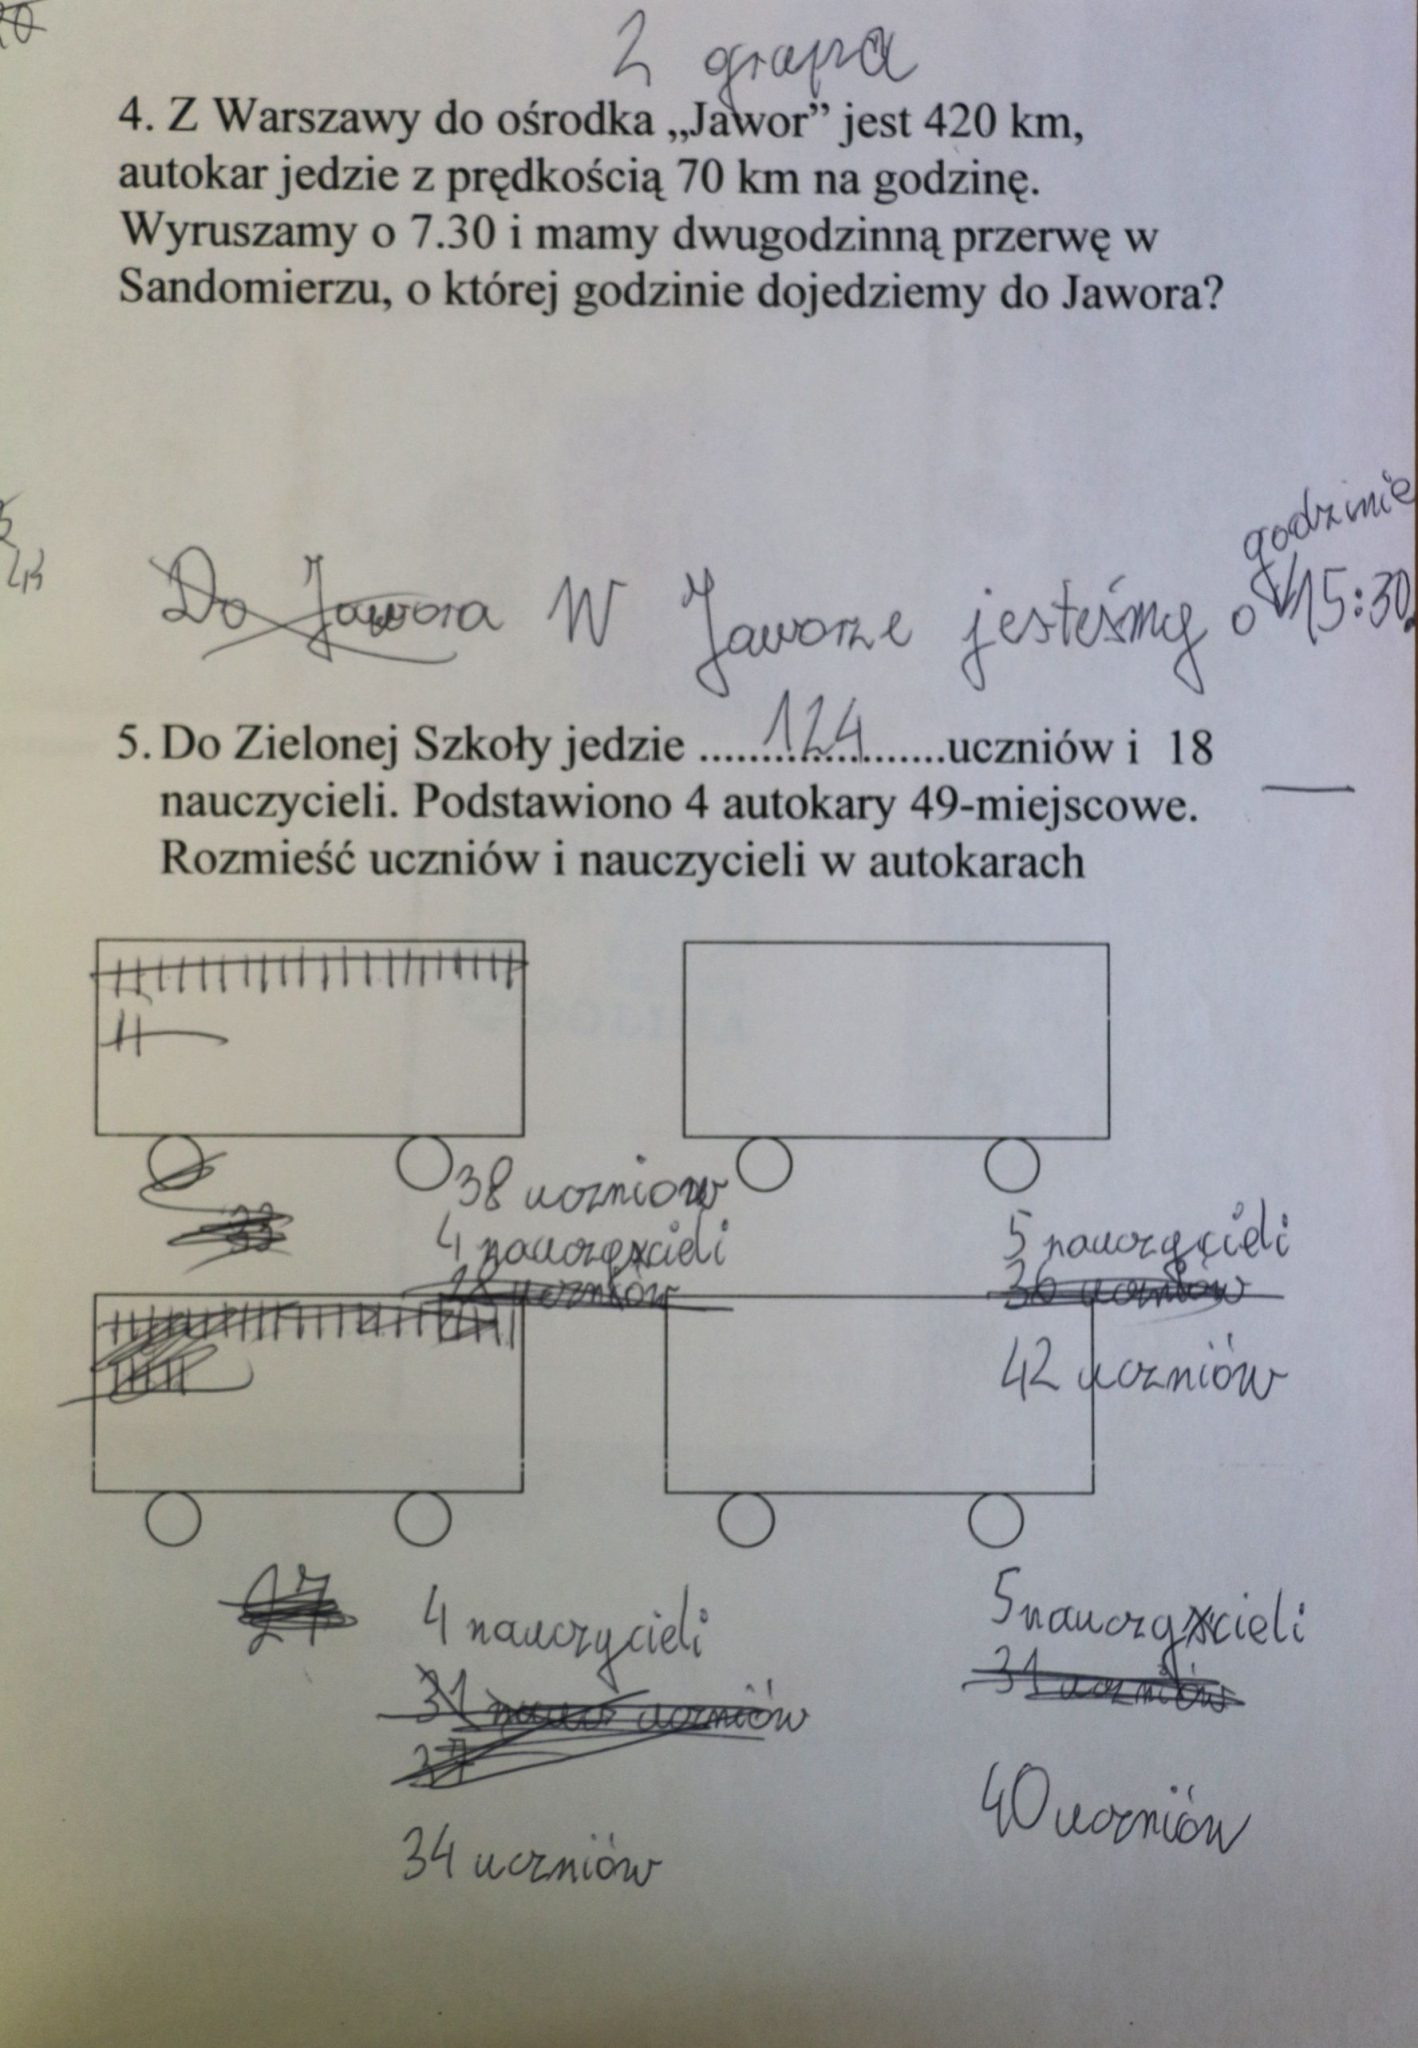 2 grupa
4. Z Warszawy do ośrodka „Jawor” jest 420 km,
autokar jedzie z prędkością 70 km na godzinę.
Wyruszamy o 7.30 i mamy dwugodzinną przerwę w
Sandomierzu, o której godzinie dojedziemy do Jawora?
godzinie
Do Jawora W Jaworze jesteśmy o 15:30.
5. Do Zielonej Szkoły jedzie ......124......uczniów i 18
nauczycieli. Podstawiono 4 autokary 49-miejscowe.
Rozmieść uczniów i nauczycieli w autokarach
38 uczniów
33
4 nauczycieli
28 uczniów
5 nauczycieli
36 uczniów
42 uczniów
27
4 nauczycieli
31 uczniów
37
34 uczniów
5 nauczycieli
31 uczniów
40 uczniów